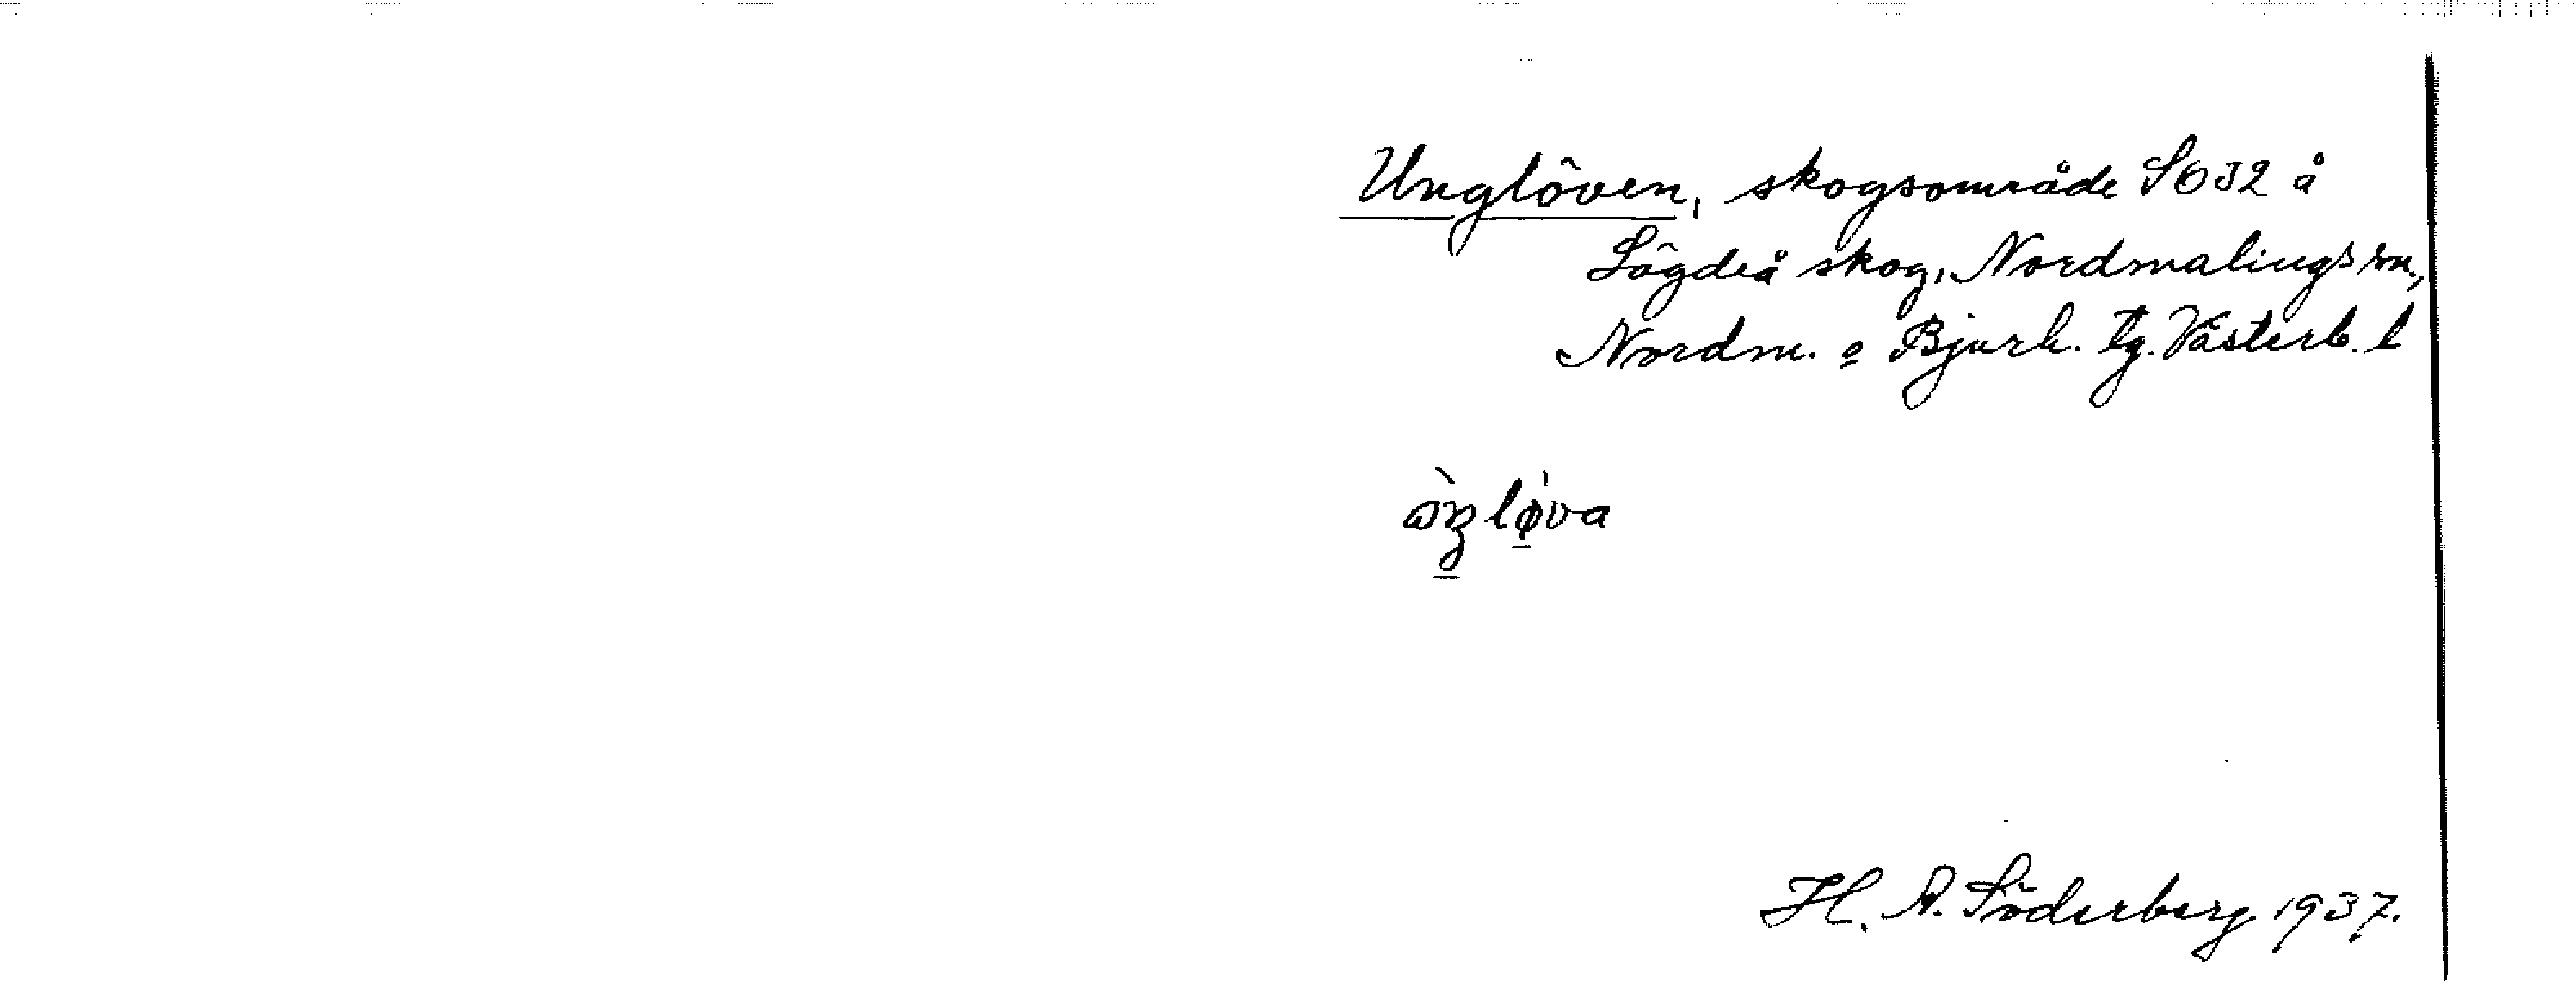 Unglöven, skogsområde SO32 å
Lögdeå skog, Nordmalings sn,
Nordm. o Bjurh. tg. Västerb. l
H. A. Söderberg 1937.